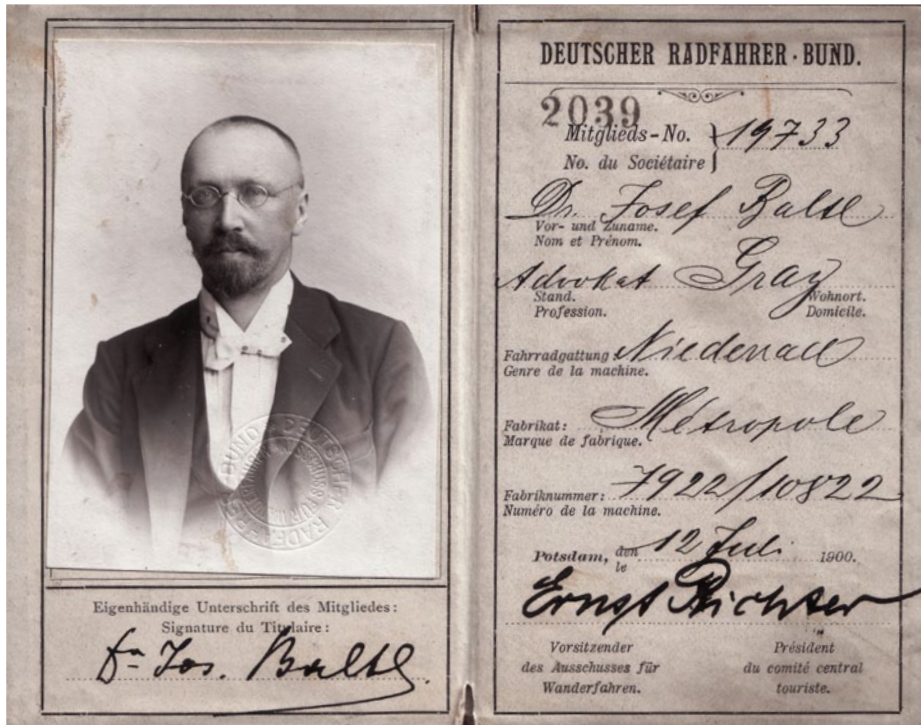 Eigenhändige Unterschrift des Mitgliedes:
Signature du Titulaire:
Dr Jos. Baltl.
DEUTSCHER RADFAHRER-BUND.
2039
Mitglieds-No.
No. du Sociétaire } 19733
Dr. Josef Baltl
Vor- und Zuname.
Nom et Prénom.
Advokat Graz
Stand. Wohnort.
Profession. Domicile.
Fahrradgattung: Niederrad
Genre de la machine.
Fabrikat: Métropole
Marque de fabrique.
Fabriknummer: 7922/10822
Numéro de la machine.
Potsdam, den 12 Juli 1900.
le
Ernst Richter
Vorsitzender Président
des Ausschusses für du comité central
Wanderfahren. touriste.